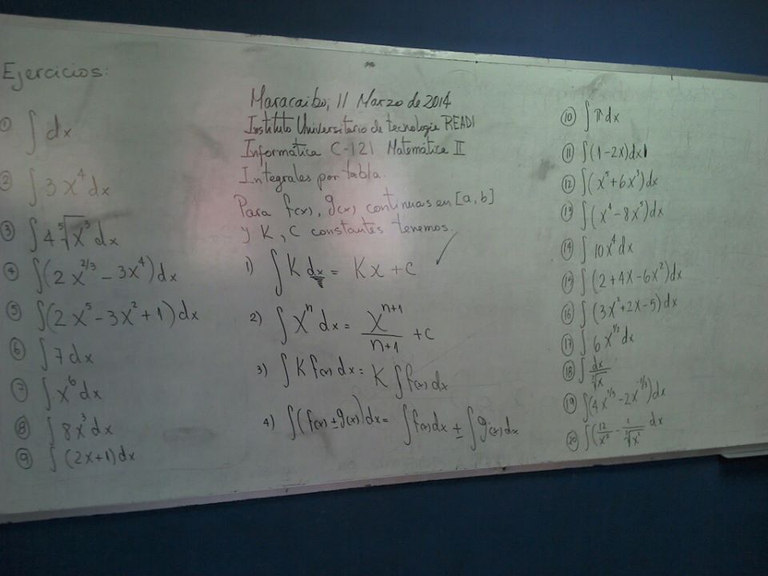 Ejercicios:
① ∫ dx
② ∫ 3x⁴ dx
③ ∫ 4 ⁵√x³ dx
④ ∫ (2x^(2/3) - 3x⁴) dx
⑤ ∫ (2x⁵ - 3x² + 1) dx
⑥ ∫ 7 dx
⑦ ∫ x⁶ dx
⑧ ∫ 8x³ dx
⑨ ∫ (2x+1) dx
Maracaibo, 11 Marzo de 2014
Instituto Universitario de tecnología READI
Informática C-121 Matemática II
Integrales por tabla.
Para f(x), g(x) continuas en [a, b]
y K, C constantes tenemos
1) ∫ K dx = Kx + c ✓
2) ∫ xⁿ dx = x^(n+1)/(n+1) + c
3) ∫ K f(x) dx = K ∫ f(x) dx
4) ∫ (f(x) ± g(x)) dx = ∫ f(x) dx ± ∫ g(x) dx
⑩ ∫ π dx
⑪ ∫ (1-2x) dx
⑫ ∫ (x⁵ + 6x³) dx
⑬ ∫ (x⁴ - 8x⁵) dx
⑭ ∫ 10x⁴ dx
⑮ ∫ (2 + 4x - 6x²) dx
⑯ ∫ (3x² + 2x - 5) dx
⑰ ∫ 6x dx
⑱ ∫ dx
⑲ ∫ (4x - 2x) dx
⑳ ∫ (12 - 1 dx